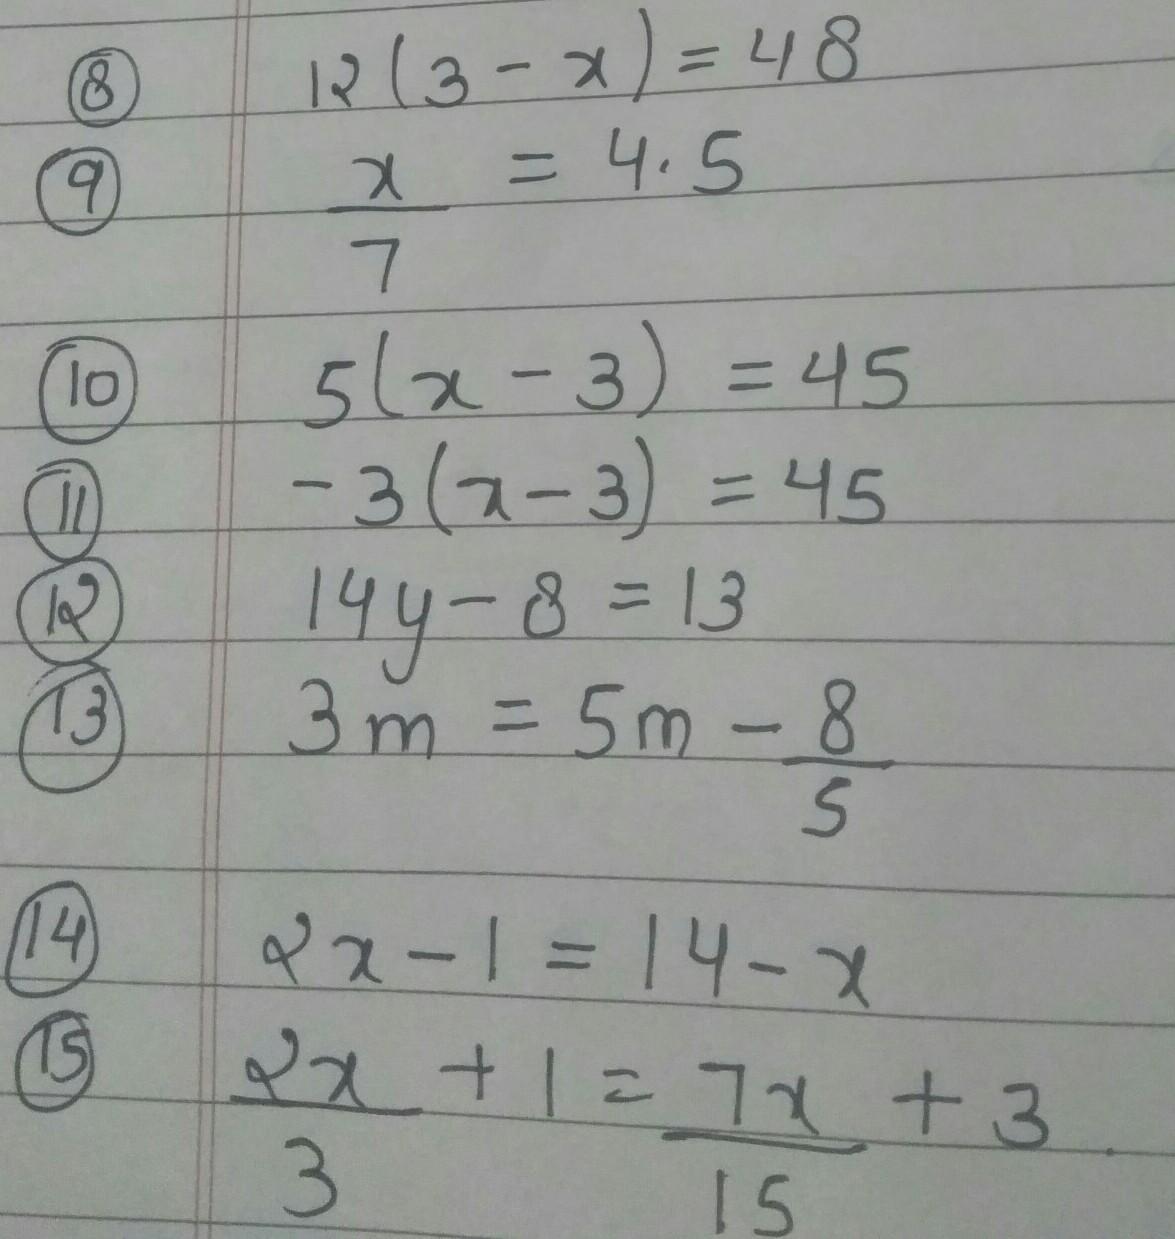 ⑧ 12(3 - x) = 48
⑨ x/7 = 4.5
⑩ 5(x - 3) = 45
⑪ -3(x - 3) = 45
⑫ 14y - 8 = 13
⑬ 3m = 5m - 8/5
⑭ 2x - 1 = 14 - x
⑮ 2x/3 + 1 = 7x/15 + 3